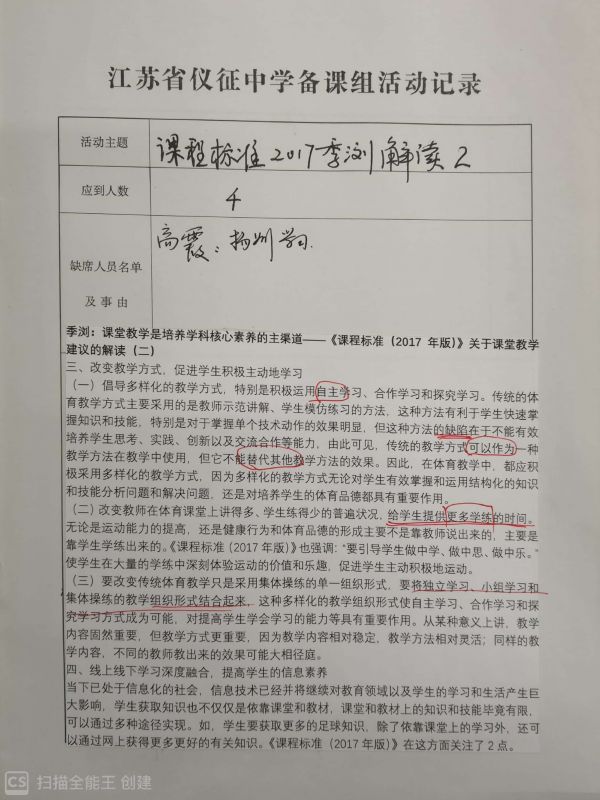 江苏省仪征中学备课组活动记录
活动主题
课程标准2017季浏解读2
应到人数
4
缺席人员名单
及事由
高霞：扬州学习.
季浏：课堂教学是培养学科核心素养的主渠道——《课程标准（2017 年版）》关于课堂教学
建议的解读（二）
三、改变教学方式，促进学生积极主动地学习
（一）倡导多样化的教学方式，特别是积极运用自主学习、合作学习和探究学习。传统的体
育教学方式主要采用的是教师示范讲解、学生模仿练习的方法，这种方法有利于学生快速掌
握知识和技能，特别是对于掌握单个技术动作的效果明显，但这种方法的缺陷在于不能有效
培养学生思考、实践、创新以及交流合作等能力，由此可见，传统的教学方式可以作为一种
教学方法在教学中使用，但它不能替代其他教学方法的效果。因此，在体育教学中，都应积
极采用多样化的教学方式，因为多样化的教学方式无论对学生有效掌握和运用结构化的知识
和技能分析问题和解决问题，还是对培养学生的体育品德都具有重要作用。
（二）改变教师在体育课堂上讲得多、学生练得少的普遍状况，给学生提供更多学练的时间。
无论是运动能力的提高，还是健康行为和体育品德的形成主要不是靠教师说出来的，主要是
靠学生学练出来的。《课程标准（2017 年版）》也强调：“要引导学生做中学、做中思、做中乐。”
使学生在大量的学练中深刻体验运动的价值和乐趣，促进学生主动积极地运动。
（三）要改变传统体育教学只是采用集体操练的单一组织形式，要将独立学习、小组学习和
集体操练的教学组织形式结合起来，这种多样化的教学组织形式使自主学习、合作学习和探
究学习方式成为可能，对提高学生学会学习的能力等具有重要作用。从某种意义上讲，教学
内容固然重要，但教学方式更重要，因为教学内容相对稳定，教学方法相对灵活；同样的教
学内容，不同的教师教出来的效果可能大相径庭。
四、线上线下学习深度融合，提高学生的信息素养
当下已处于信息化的社会，信息技术已经并将继续对教育领域以及学生的学习和生活产生巨
大影响，学生获取知识也不仅仅是依靠课堂和教材，课堂和教材上的知识和技能毕竟有限，
可以通过多种途径实现。如，学生要获取更多的足球知识，除了依靠课堂上的学习外，还可
以通过网上获得更多更好的有关知识。《课程标准（2017 年版）》在这方面关注了 2 点。
CS 扫描全能王 创建